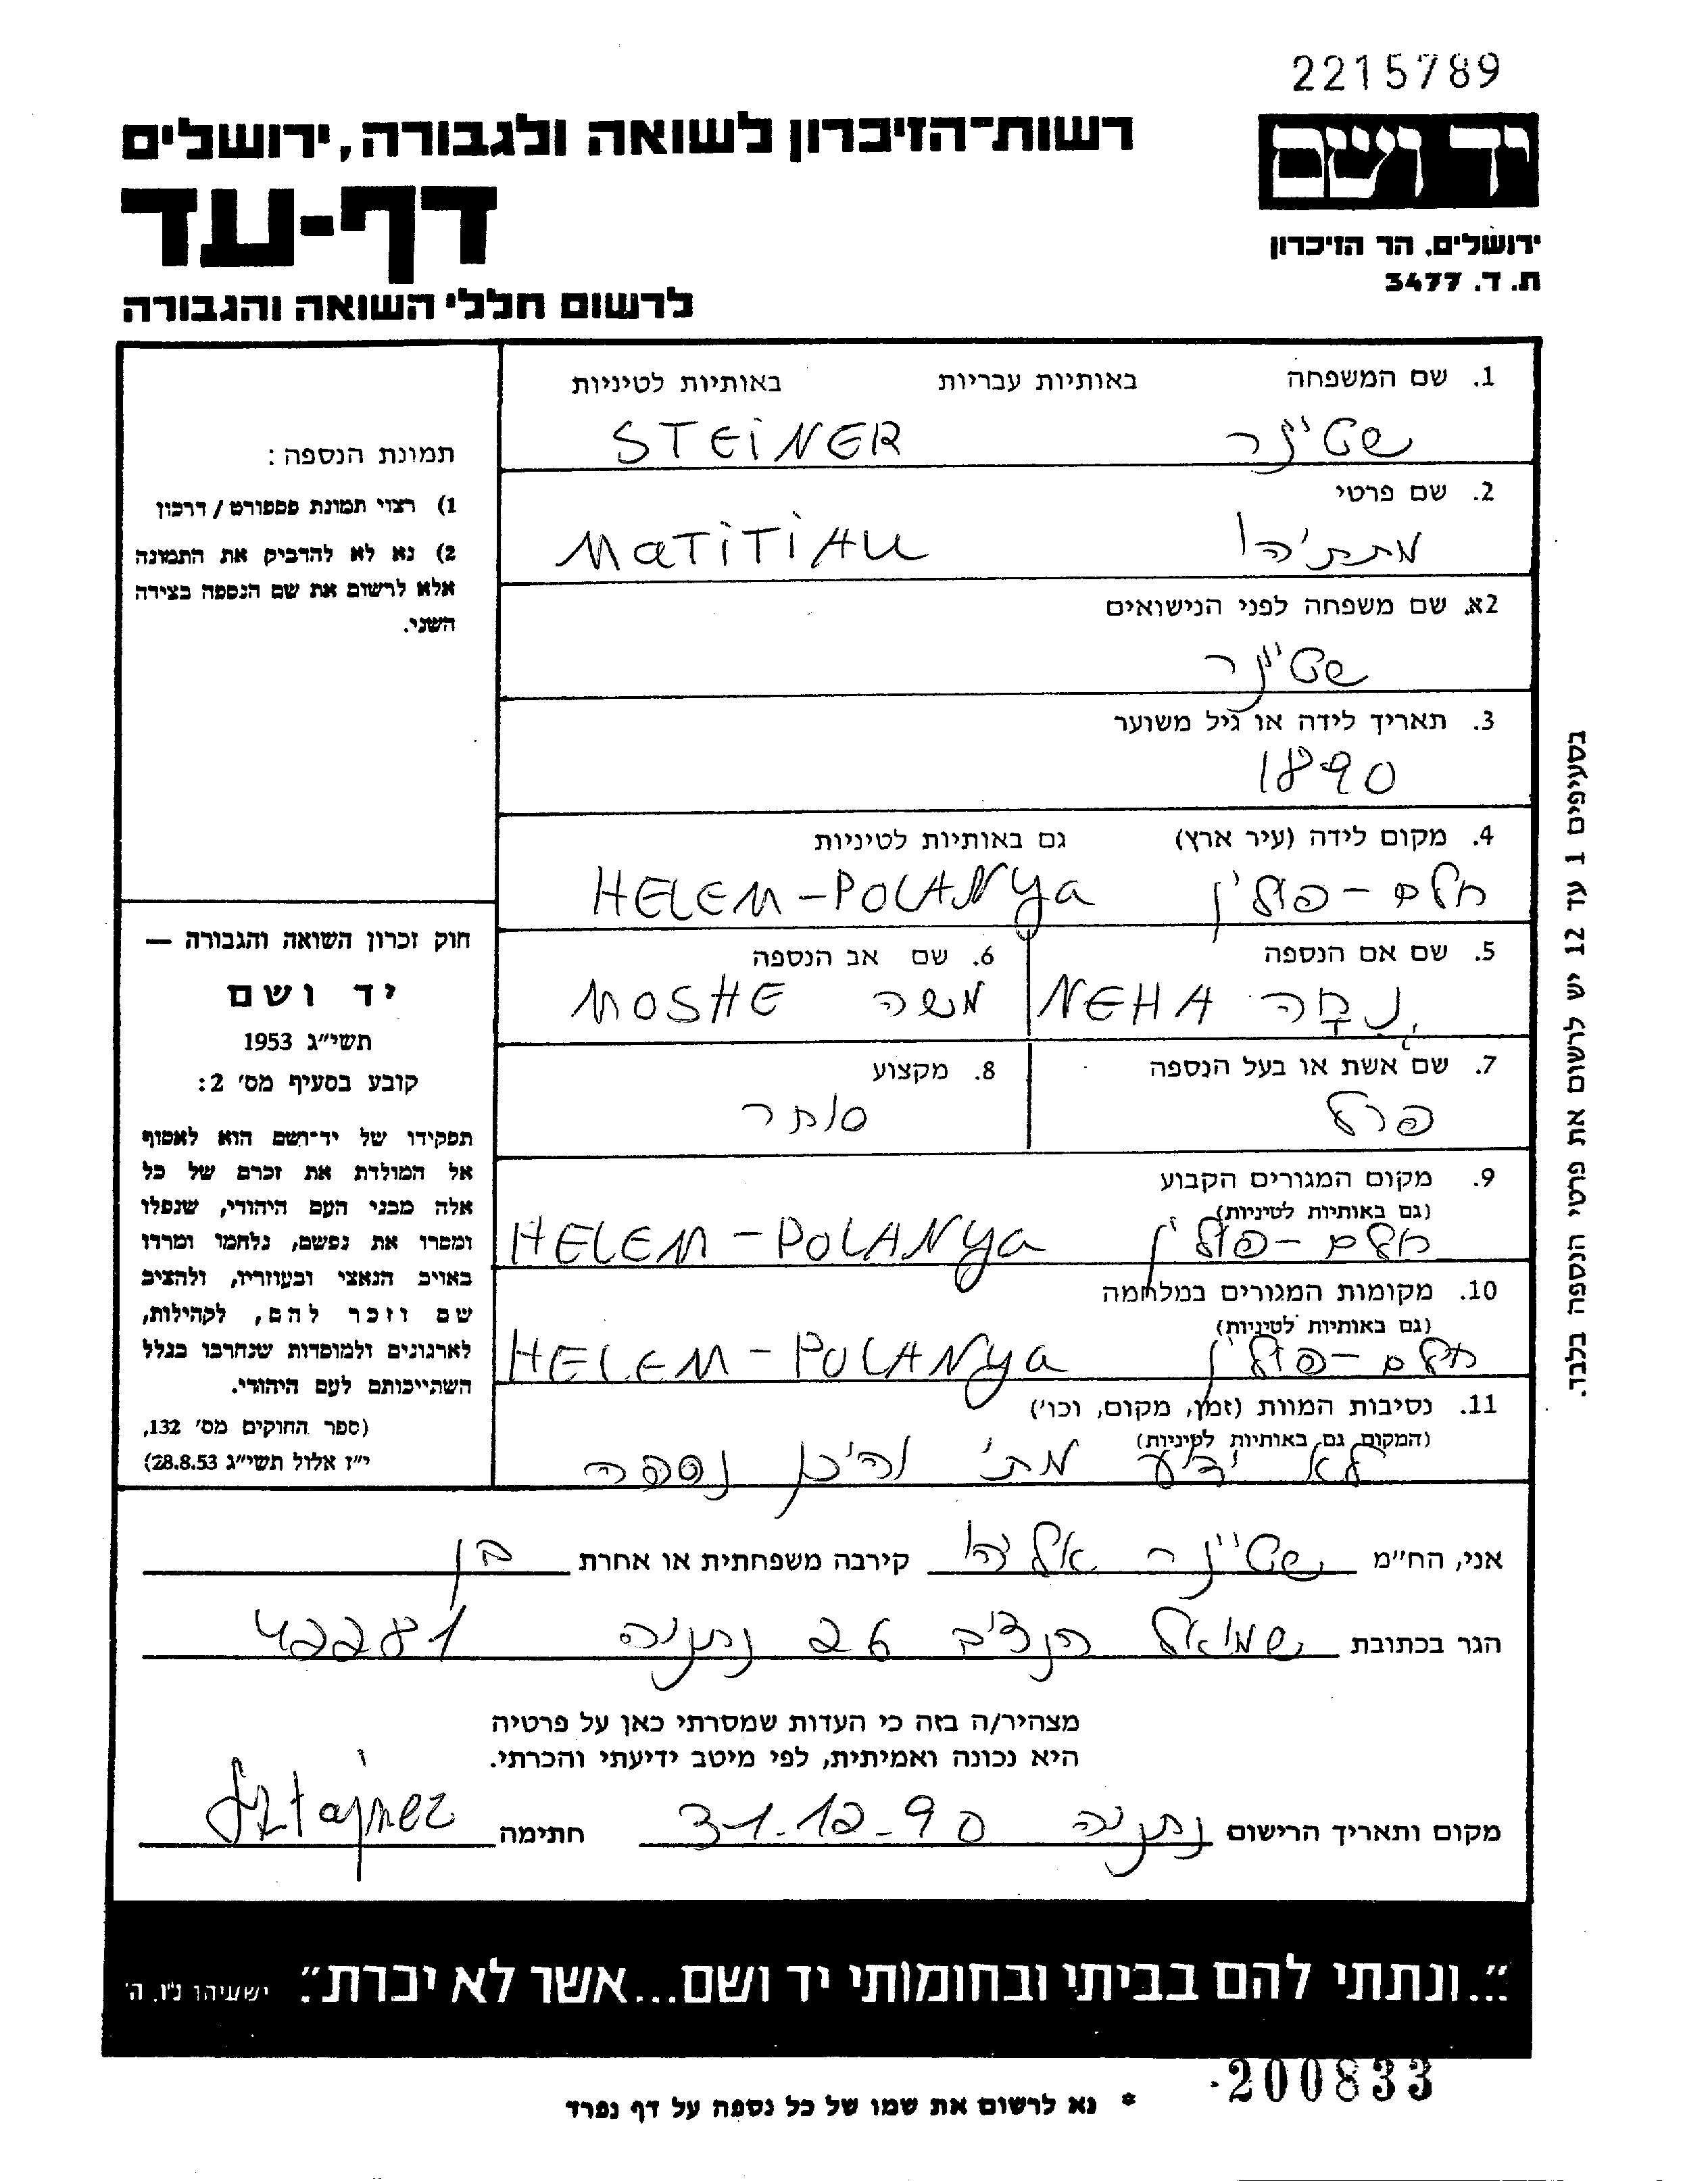 2215789
רשות־הזיכרון לשואה ולגבורה, ירושלים
יד ושם
דף-עד
ירושלים, הר הזיכרון
ת. ד. 3477
לרשום חללי השואה והגבורה
1. שם המשפחה באותיות עבריות באותיות לטיניות
שטיינר STEINER
2. שם פרטי
מתתיהו MATITIAHU
2א. שם משפחה לפני הנישואים
שטיינר
3. תאריך לידה או גיל משוער
1890
4. מקום לידה (עיר ארץ) גם באותיות לטיניות
חלם - פולין HELEM - POLANYA
5. שם אם הנספה
נֶחָה NEHA
6. שם אב הנספה
משה MOSHE
7. שם אשת או בעל הנספה
פרל
8. מקצוע
סוחר
9. מקום המגורים הקבוע
(גם באותיות לטיניות)
חלם - פולין HELEM - POLANYA
10. מקומות המגורים במלחמה
(גם באותיות לטיניות)
חלם - פולין HELEM - POLANYA
11. נסיבות המוות (זמן, מקום, וכו')
(המקום גם באותיות לטיניות)
לא ידוע מתי והיכן נספה
תמונת הנספה:
1) רצוי תמונת פספורט / דרכון
2) נא לא להדביק את התמונה
אלא לרשום את שם הנספה בצידה
השני.
חוק זכרון השואה והגבורה —
יד ושם
תשי״ג 1953
קובע בסעיף מס' 2:
תפקידו של יד־ושם הוא לאסוף
אל המולדת את זכרם של כל
אלה מבני העם היהודי, שנפלו
ומסרו את נפשם, נלחמו ומרדו
באויב הנאצי ובעוזריו, ולהציב
שם וזכר להם, לקהילות,
לארגונים ולמוסדות שנחרבו בגלל
השתייכותם לעם היהודי.
(ספר החוקים מס' 132,
י״ז אלול תשי״ג 28.8.53)
בסעיפים 1 עד 12 יש לרשום את פרטי הנספה בלבד.
אני, הח״מ שטיינר קירבה משפחתית או אחרת בן
הגר בכתובת שמואל הנציב 26 נתניה 42281
מצהיר/ה בזה כי העדות שמסרתי כאן על פרטיה
היא נכונה ואמיתית, לפי מיטב ידיעתי והכרתי.
מקום ותאריך הרישום נתניה 31.12.90 חתימה Sztajner
״...ונתתי להם בביתי ובחומותי יד ושם...אשר לא יכרת״. ישעיהו נ״ו, ה'
200833
* נא לרשום את שמו של כל נספה על דף נפרד